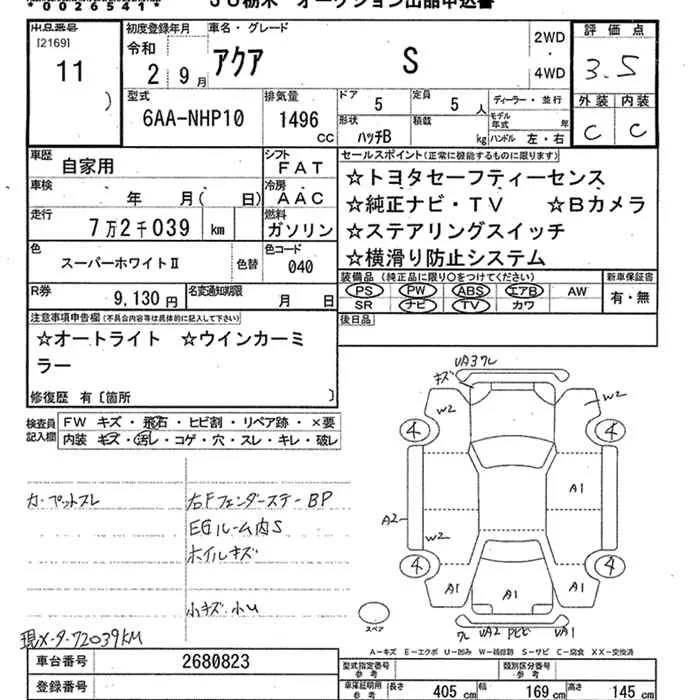 *0026541* JU栃木 オークション出品申込書
出品番号 初度登録年月 車名・グレード 評価点
[2169] 令和 2WD
11 2 9月 アクア S ・ 3.5
) 4WD
型式 排気量 ドア 5 定員 5 人 ディーラー・並行 外装 内装
6AA-NHP10 1496 cc 形状 ハッチB 積載 kg モデル年式 年 C C
ハンドル 左・右
車歴 自家用 シフト FAT セールスポイント(正常に機能するものに限ります)
車検 年 月( 日) 冷房 AAC ☆トヨタセーフティーセンス
走行 7万2千039 km 燃料 ガソリン ☆純正ナビ・TV ☆Bカメラ
☆ステアリングスイッチ
色 スーパーホワイトⅡ 色替 色コード 040 ☆横滑り防止システム
装備品(純正品に限り〇をつけてください) 新車保証書
R券 9,130円 名変通知期限 月 日 PS PW ABS エアB AW 有・無
SR ナビ TV カワ
注意事項申告欄(不具合内容等は具体的に記入して下さい) 後日品
☆オートライト ☆ウインカーミ
ラー
修復歴 有〔箇所 〕
検査員記入欄 FW キズ・飛石・ヒビ割・リペア跡・×要
内装 キズ・汚レ・コゲ・穴・スレ・キレ・破レ
UA3ワレ
キズ
W2 W2
4 4
A1
A2
W2
4 4
A1 A1 A1
ワレ UA2 UA1
スペア
カーペットスレ 右FフェンダーステーBP
EGルーム内S
ホイルキズ
小キズ.小U
現メーター72039KM
A-キズ E-エクボ U-凹み W-補修跡 S-サビ C-腐食 XX-交換済
車台番号 2680823 型式指定番号 参考 類別区分番号 参考
登録番号 車庫証明用 参考 長さ 405 cm 幅 169 cm 高さ 145 cm